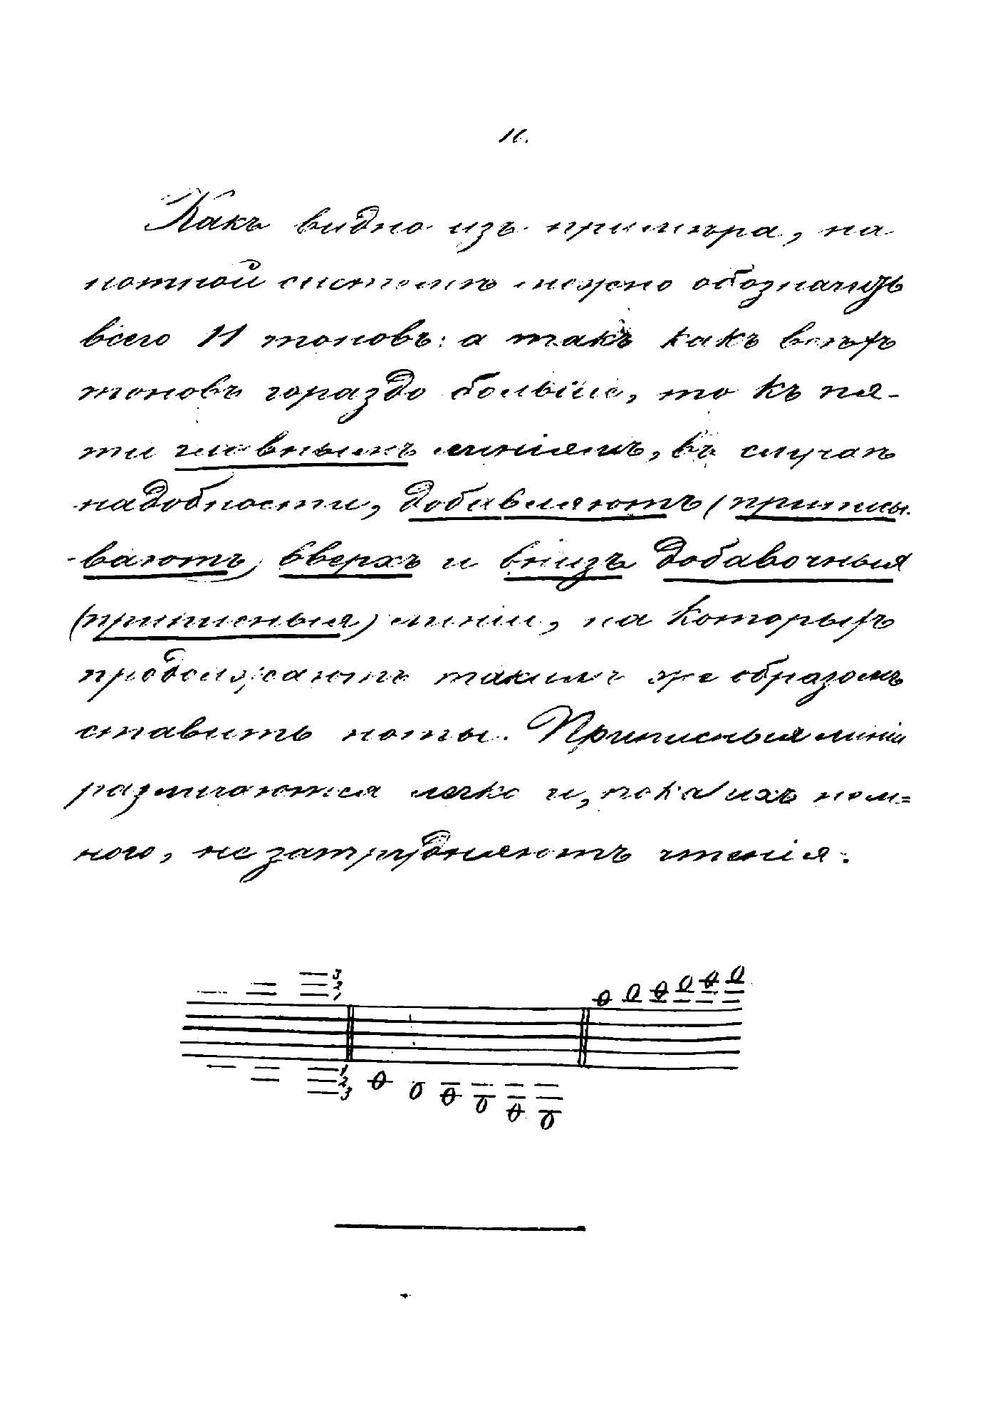 16.
Какъ видно изъ примѣра, на
нотной системѣ можно обозначить
всего 11 тоновъ: а такъ какъ всѣхъ
тоновъ гораздо больше, то къ пя-
ти главнымъ линіямъ, въ случаѣ
надобности, добавляютъ (приписы-
-ваютъ) вверхъ и внизъ добавочныя
(приписныя) линіи, на которыхъ
продолжаютъ такимъ же образомъ
ставить ноты. Приписныя линіи
различаются легко и, пока ихъ нем=
ного, не затрудняютъ чтенія.
3
2
1
1
2
3